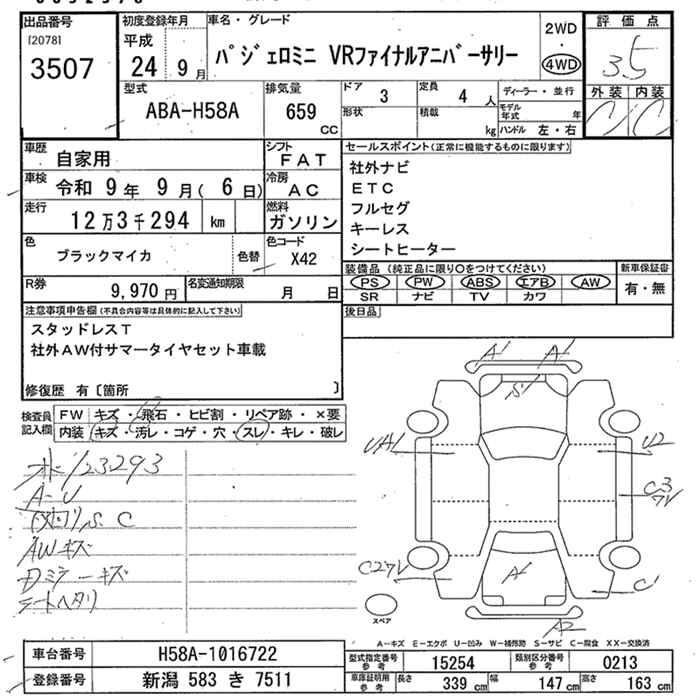 出品番号
[2078]
3507
初度登録年月
平成
24 9月
車名・グレード
パジェロミニ VRファイナルアニバーサリー
2WD
・
4WD
評価点
3.5
外装 内装
C C
型式
ABA-H58A
排気量
659
cc
ドア
3
定員
4 人
形状
積載
kg
ディーラー・並行
モデル年式 年
ハンドル 左・右
車歴
自家用
シフト
FAT
車検
令和 9年 9月( 6日)
冷房
AC
走行
12万3千294 km
燃料
ガソリン
色
ブラックマイカ
色替
色コード
X42
R券
9,970円
名変通知期限
月 日
セールスポイント(正常に機能するものに限ります)
社外ナビ
ETC
フルセグ
キーレス
シートヒーター
装備品(純正品に限り〇をつけてください)
新車保証書
PS PW ABS エアB AW
SR ナビ TV カワ
有・無
後日品
注意事項申告欄(不具合内容等は具体的に記入して下さい)
スタッドレスT
社外AW付サマータイヤセット車載
修復歴 有〔箇所 〕
検査員記入欄
FW キズ・飛石・ヒビ割・リペア跡・×要
内装 キズ・汚レ・コゲ・穴・スレ・キレ・破レ
123293
A-U
S C
AWキズ
Dミラーキズ
シートヘタリ
A A
S
UA1
U2
C3
C2
A
C
A2
スペア
A-キズ E-エクボ U-凹み W-補修跡 S-サビ C-腐食 XX-交換済
車台番号
H58A-1016722
登録番号
新潟 583 き 7511
型式指定番号 参考
15254
類別区分番号 参考
0213
車庫証明用 参考
長さ 339 cm
幅 147 cm
高さ 163 cm